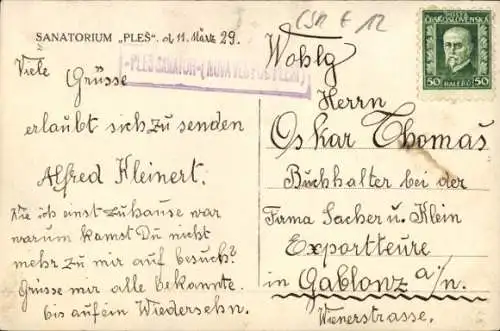 ČSR F 12
SANATORIUM „PLEŠ“. d 11. März 29.
„PLEŠ SANATOR“ (NOVÁ VES POD PLEŠÍ)
Viele Grüsse
erlaubt sich zu senden
Alfred Kleinert.
Wie ich einst zuhause war
warum kamst Du nicht
mehr zu mir auf besuch?
Grüsse mir alle bekannte.
bis auf ein Wiedersehn.
ČESKOSLOVENSKÁ
50 HALÉŘŮ 50
Wohlg
Herrn
Oskar Thomas
Buchhalter bei der
Firma Sacher u. Klein
Exporteure
in Gablonz a/n.
Wienerstrasse.